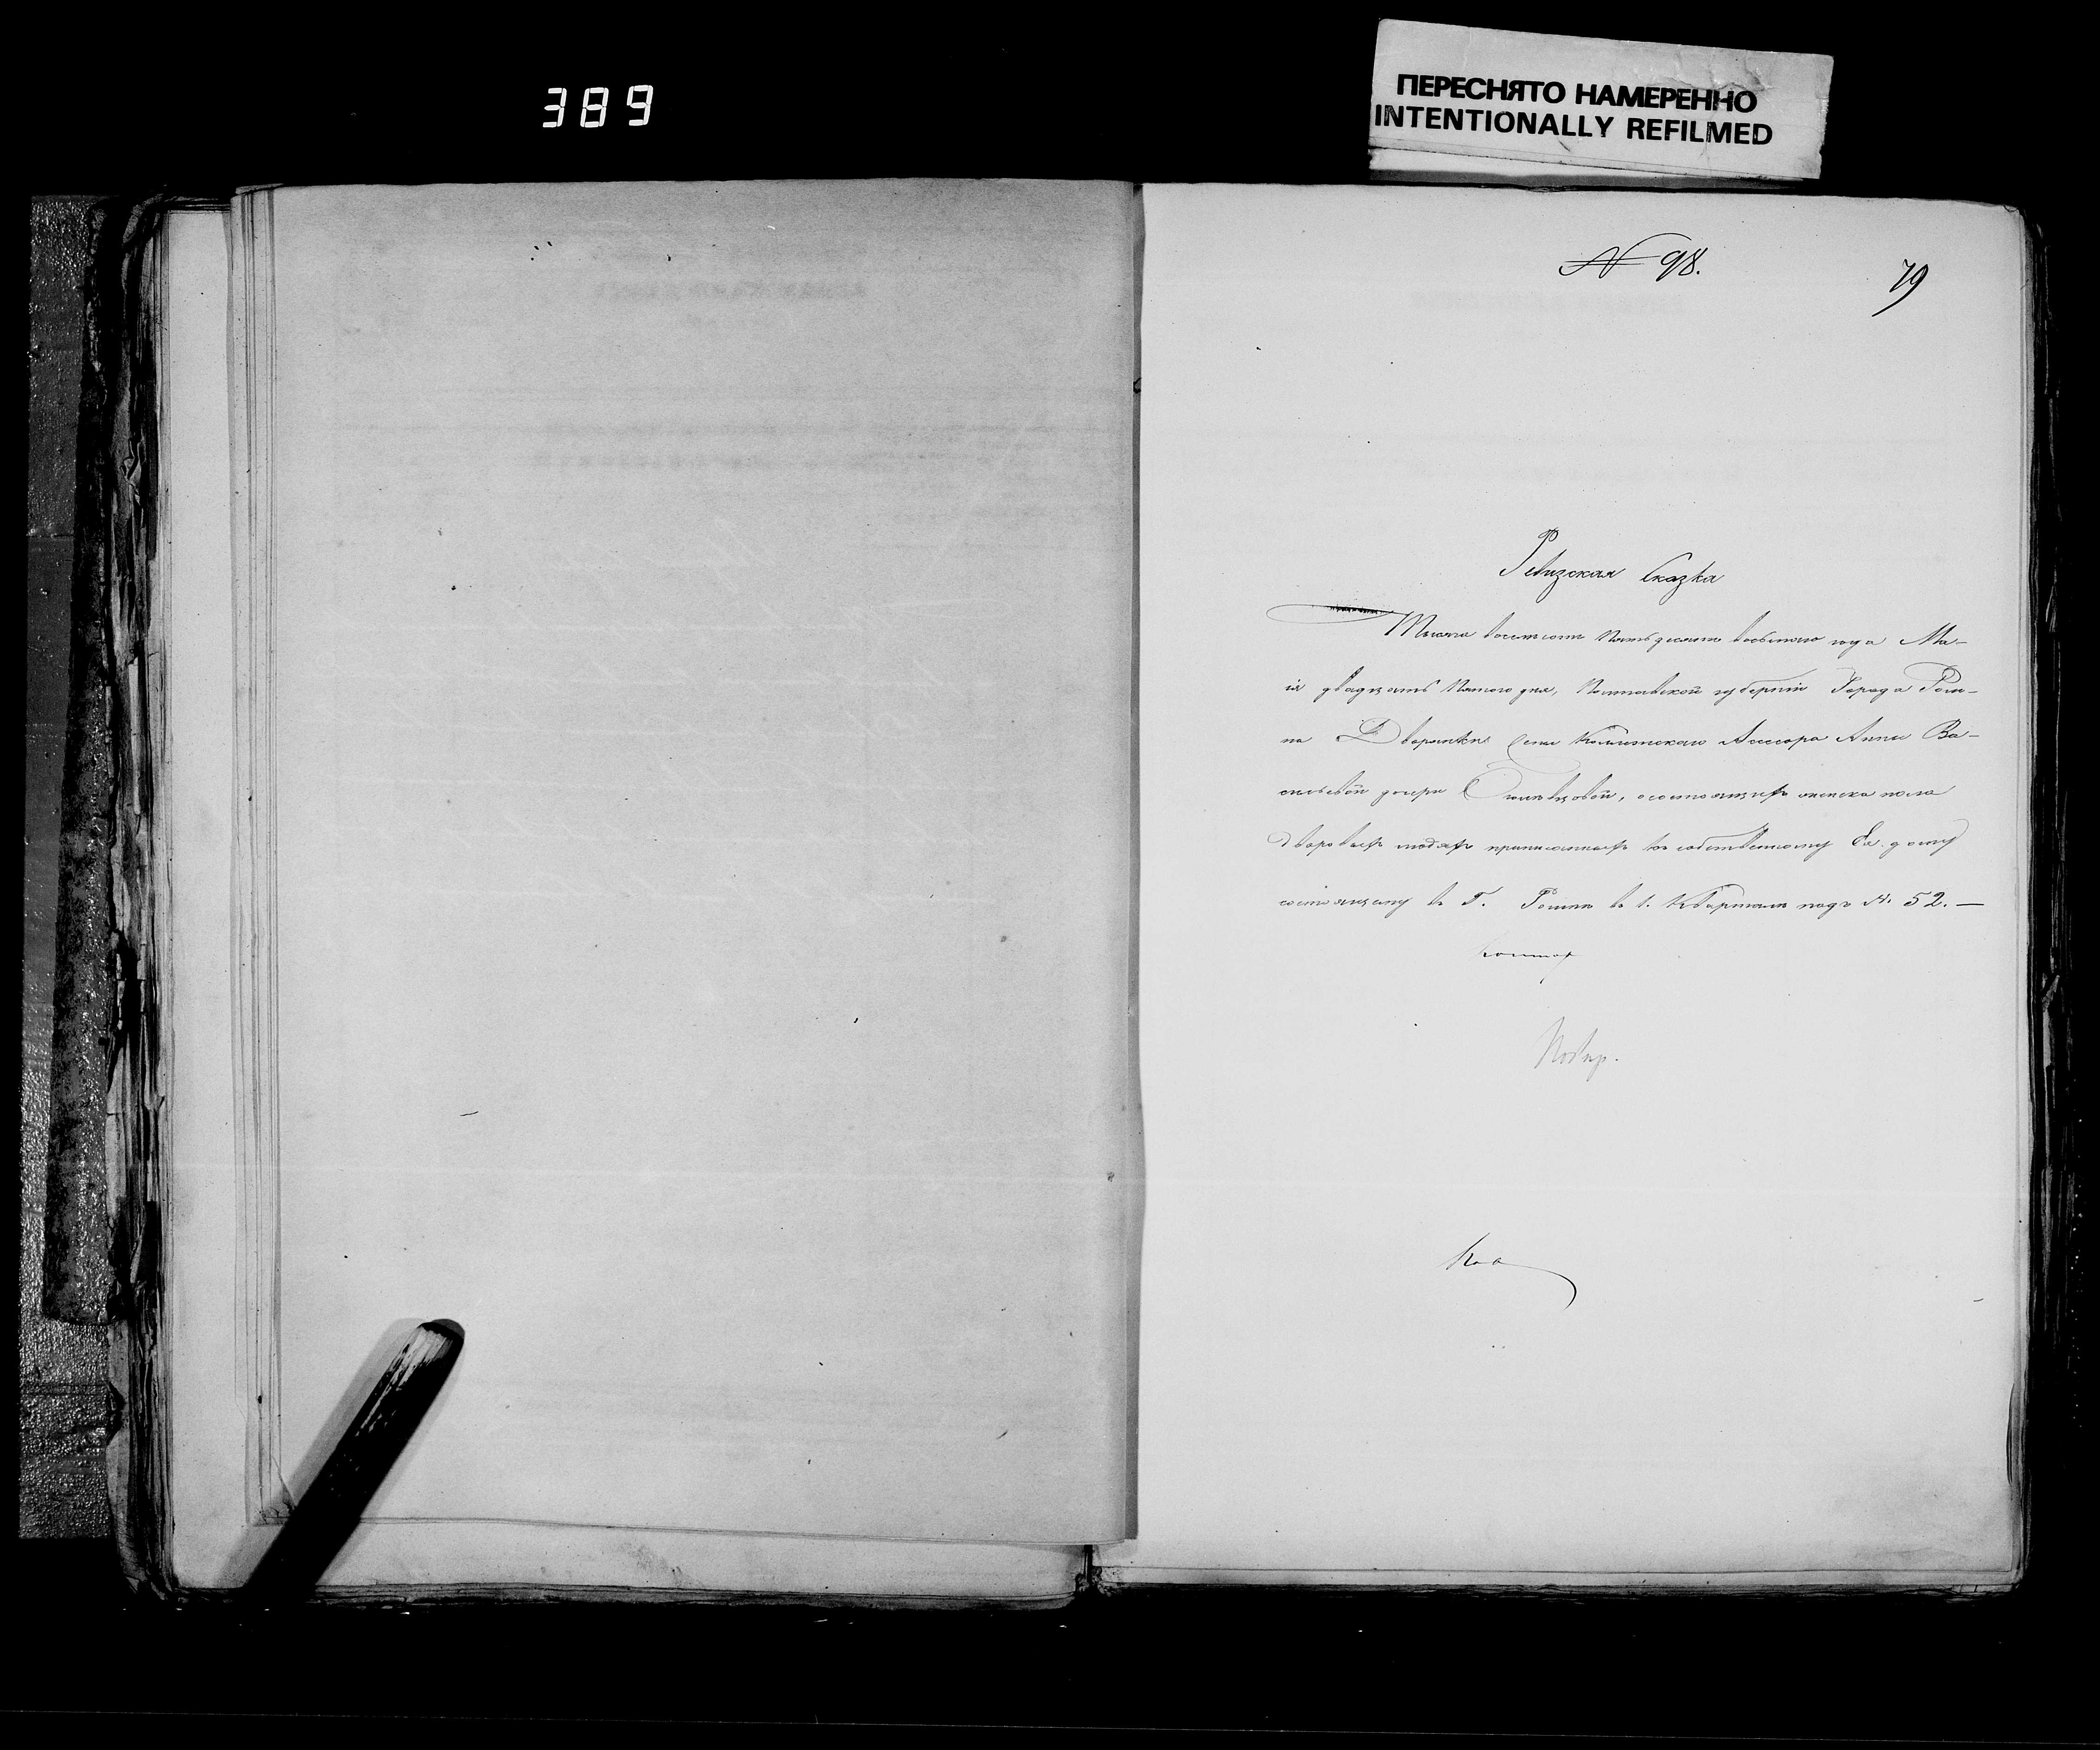 389
ПЕРЕСНЯТО НАМЕРЕННО
INTENTIONALLY REFILMED
N 98.
79
Ревизская Сказка
Тысяча восемсотъ пятьдесятъ восьмого года Ма-
ія двадцать пятого дня, Полтавской губерніи Города Ром-
на Дворянки Коллежскаго Асессора Анны Ва-
сильевой дочери о состоящихъ женска пола
дворовыхъ людяхъ приписанныхъ къ собственному Ея дому
состоящему въ Г. Ромнѣ въ 1. Кварталѣ подъ N. 52. —
Повѣр.